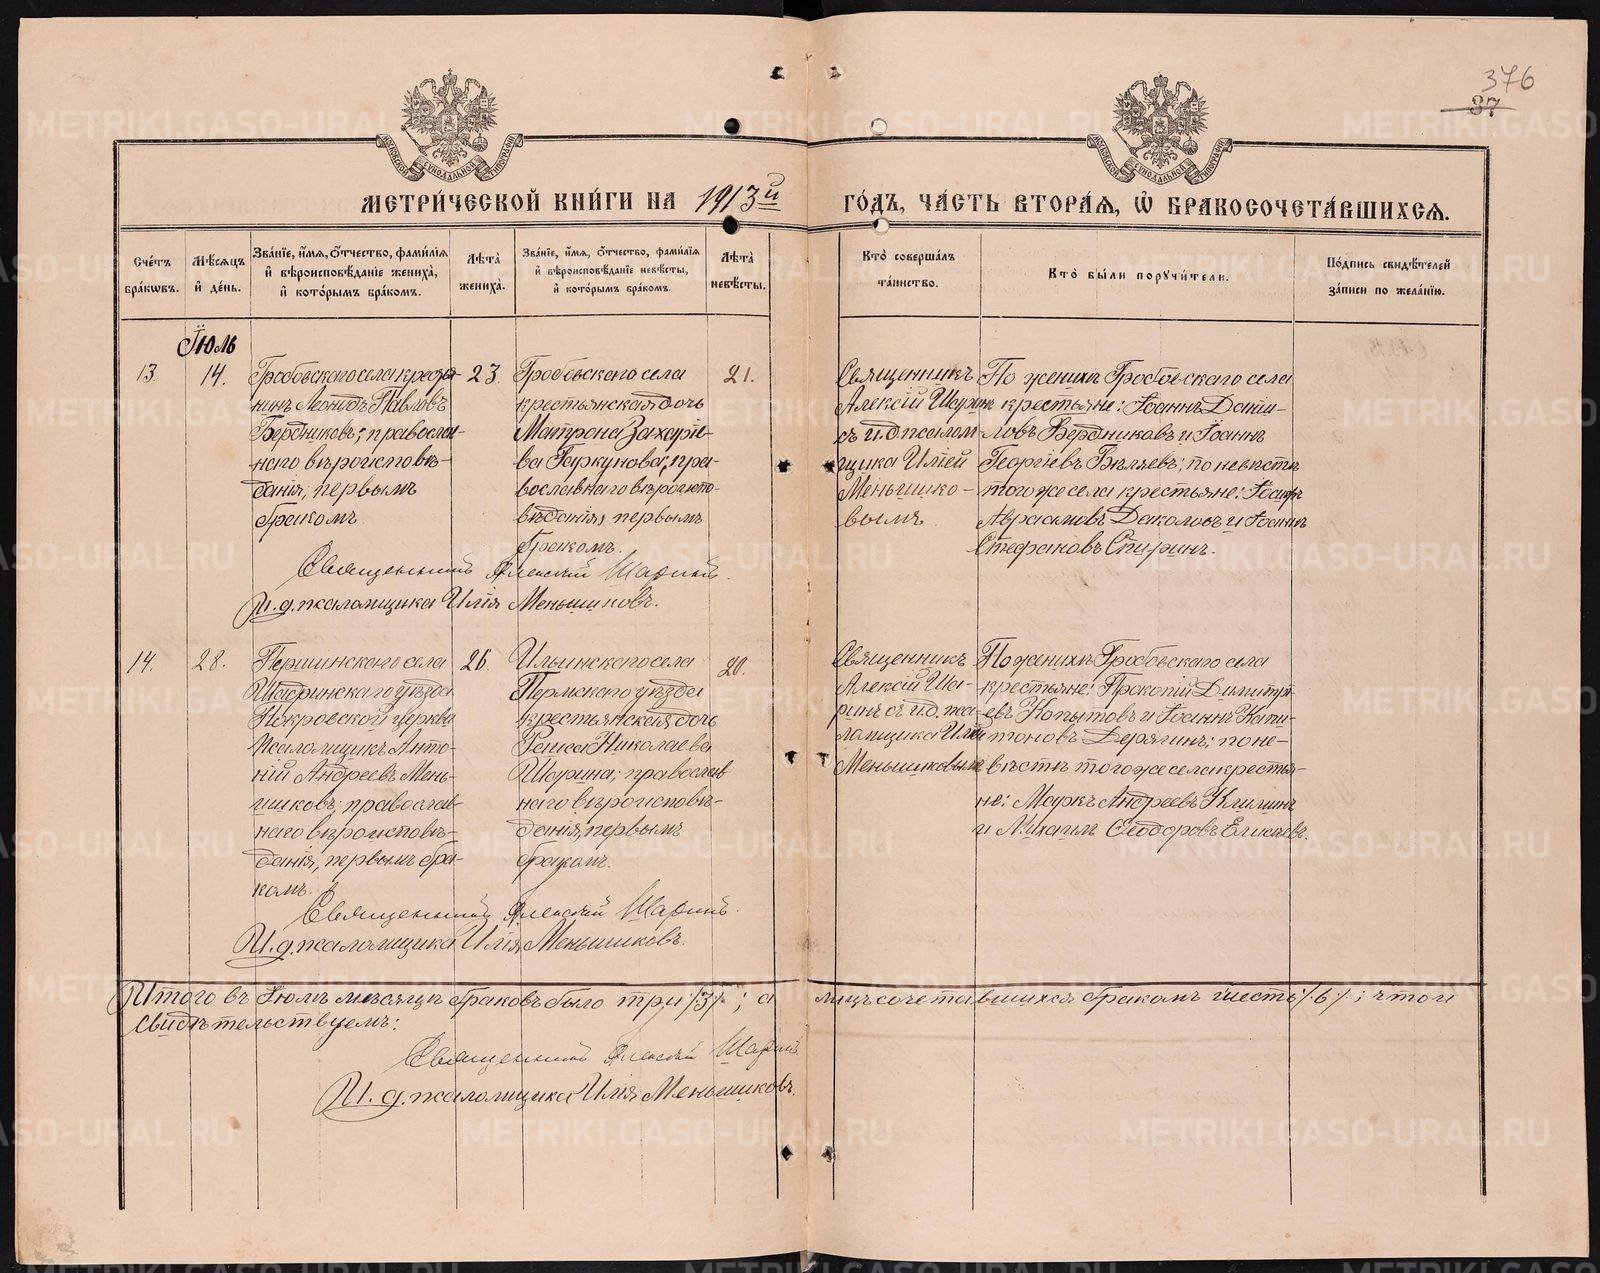 376
37
МОСКОВСКОЙ СѴНОДАЛЬНОЙ ТИПОГРАФІИ
МОСКОВСКОЙ СѴНОДАЛЬНОЙ ТИПОГРАФІИ
МЕТРИ́ЧЕСКОЙ КНИ́ГИ НА 1913й ГО́ДЪ, ЧА́СТЬ ВТОРА́Ѧ, Ѿ БРАКОСОЧЕТА́ВШИХСѦ.
Сче́тъ бра́кѡвъ.
Мѣ́сѧцъ и҆ де́нь.
Зва́нїе, и҆́мѧ, ѻ҆́тчество, фами́лїѧ и҆ вѣроисповѣ́данїе жениха̀, и҆ кото́рымъ бра́комъ.
Лѣ́та жениха̀.
Зва́нїе, и҆́мѧ, ѻ҆́тчество, фами́лїѧ и҆ вѣроисповѣ́данїе невѣ́сты, и҆ кото́рымъ бра́комъ.
Лѣ́та невѣ́сты.
Кто̀ соверша́лъ та́инство.
Кто̀ бы́ли порꙋчи́тели.
По́дпись свидѣ́телей за́писи по жела́нїю.
Іюль
13.
14.
Гробовскаго села крестья-
нинъ Леонидъ Павловъ
Бердниковъ; православ-
наго вѣроисповѣ-
данія, первымъ
бракомъ
23
Гробовскаго села
крестьянская дочь
Матрона Захаріе-
ва Горкунова, пра-
вославнаго вѣроиспо-
вѣданія, первымъ
бракомъ.
21.
Священникъ
Алексій Шаринъ
съ и.д. псалом-
щика Иліей
Меньшико-
вымъ
По женихѣ Гробовскаго села
крестьяне: Іоаннъ Даніи-
ловъ Бердниковъ и Іоаннъ
Георгіевъ Бѣляевъ; по невѣстѣ
того же села крестьяне: Іоаннъ
Авраамовъ и Іоаннъ
Стефановъ Спиринъ.
Священникъ Алексій Шаринъ.
И. д. псаломщика Илія Меньшиковъ.
14.
28.
Першинскаго села
Шадринскаго уѣзда
Покровской церкви
псаломщикъ Анто-
ній Андреевъ Мень-
шиковъ; православ-
наго вѣроисповѣ-
данія, первымъ бра-
комъ.
26.
Ильинскаго села
Пермскаго уѣзда
крестьянская дочь
Раиса Николаева
Шарина; православ
наго вѣроисповѣ-
данія, первымъ
бракомъ.
20.
Священникъ
Алексій Ша-
ринъ съ и.д. пса-
ломщика Иліей
Меньшиковымъ
По женихѣ Гробовскаго села
крестьяне: Прокопій Димитрі-
евъ Копытовъ и Іоаннъ Капи-
тоновъ Дерягинъ; по не-
вѣстѣ того же села крестья-
не: Маркъ Андреевъ Климинъ
и Михаилъ Ѳеодоровъ Елисѣевъ.
Священникъ Алексій Шаринъ.
И. д. псаломщика Илія Меньшиковъ.
Итого въ Іюлѣ мѣсяцѣ браковъ было три /3/; а лицъ сочетавшихся бракомъ шесть /6/; что и
свидѣтельствуемъ:
Священникъ Алексій Шаринъ
И. д. псаломщика Илія Меньшиковъ.
METRIKI.GASO-URAL.RU